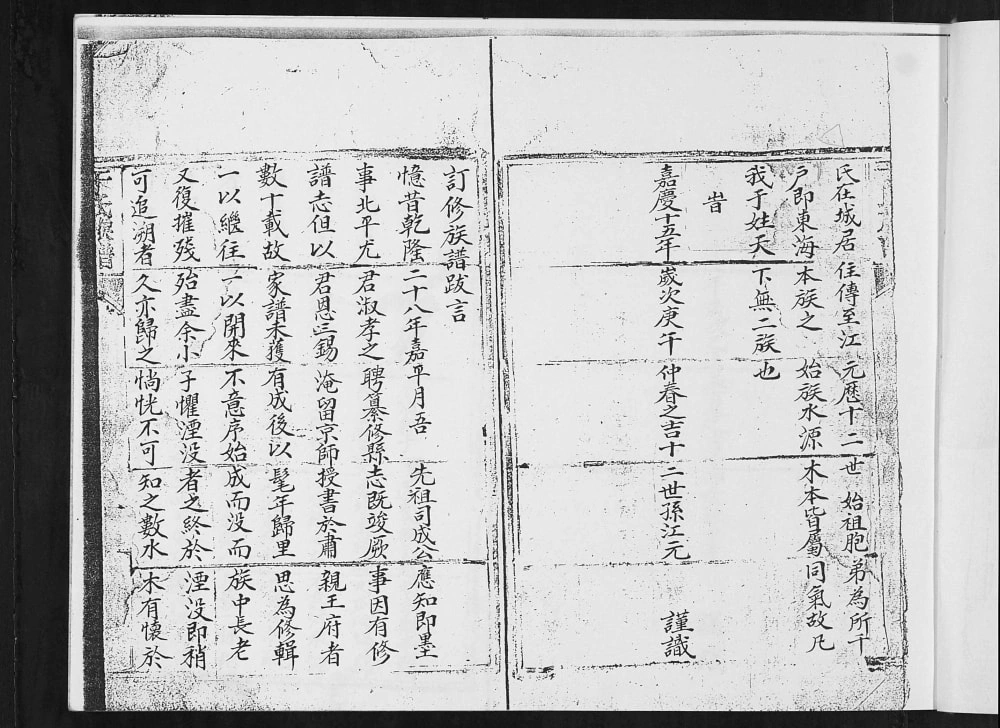 氏在城居住傳至江元歷十二世始祖胞弟為所千
戶即東海本族之始族水源木本皆屬同氣故凡
我于姓天下無二族也
旹
嘉慶十五年歲次庚午仲春之吉十二世孫江元謹識
訂修族譜跋言
憶昔乾隆二十八年嘉平月吾先祖司成公應知即墨
事北平尤君淑孝之聘纂修縣志既竣厥事因有修
譜志但以君恩三錫淹留京師授書於肅親王府者
數十載故家譜未獲有成後以髦年歸里思為修輯
一以繼往一以開來不意序始成而没而族中長老
又復摧殘殆盡余小子懼湮没者之終於湮没即稍
可追溯者久亦歸之惝恍不可知之數水木有懷於
氏族譜